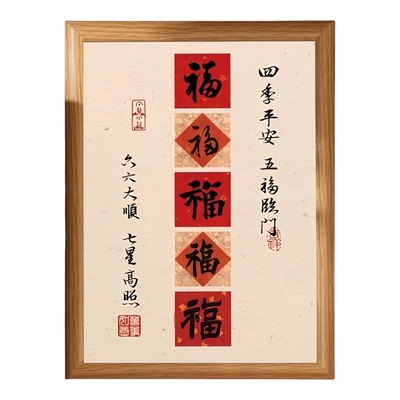 四季平安 五福臨門
福
福
福
福
福
六六大順 七星高照